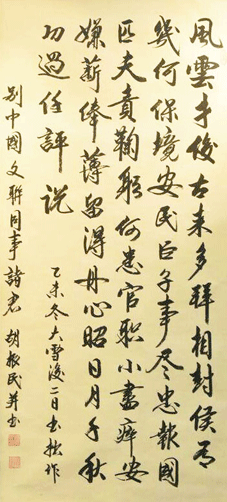 風雲才俊古来多拜相封侯有
幾何保境安民臣子事盡忠報國
匹夫責鞠躬何患官職小盡瘁安
嫌薪俸薄留得丹心昭日月千秋
功過任評說
乙未冬大雪後二日書拙作
別中國文聯同事諸君 胡振民并書